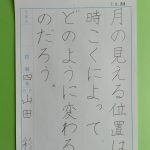 月の見える位置は
時こくによって、
どのように変わる
のだろう。
四 山田